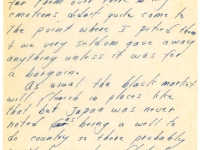 for them over
emotions, didn't quite come to
the point where I pitied them
& we very seldom gave away
anything unless it was for
a bargain.
As usual the black market
will flourish in places like
that, but Japan was never
noted as being a well to
do country so there probably